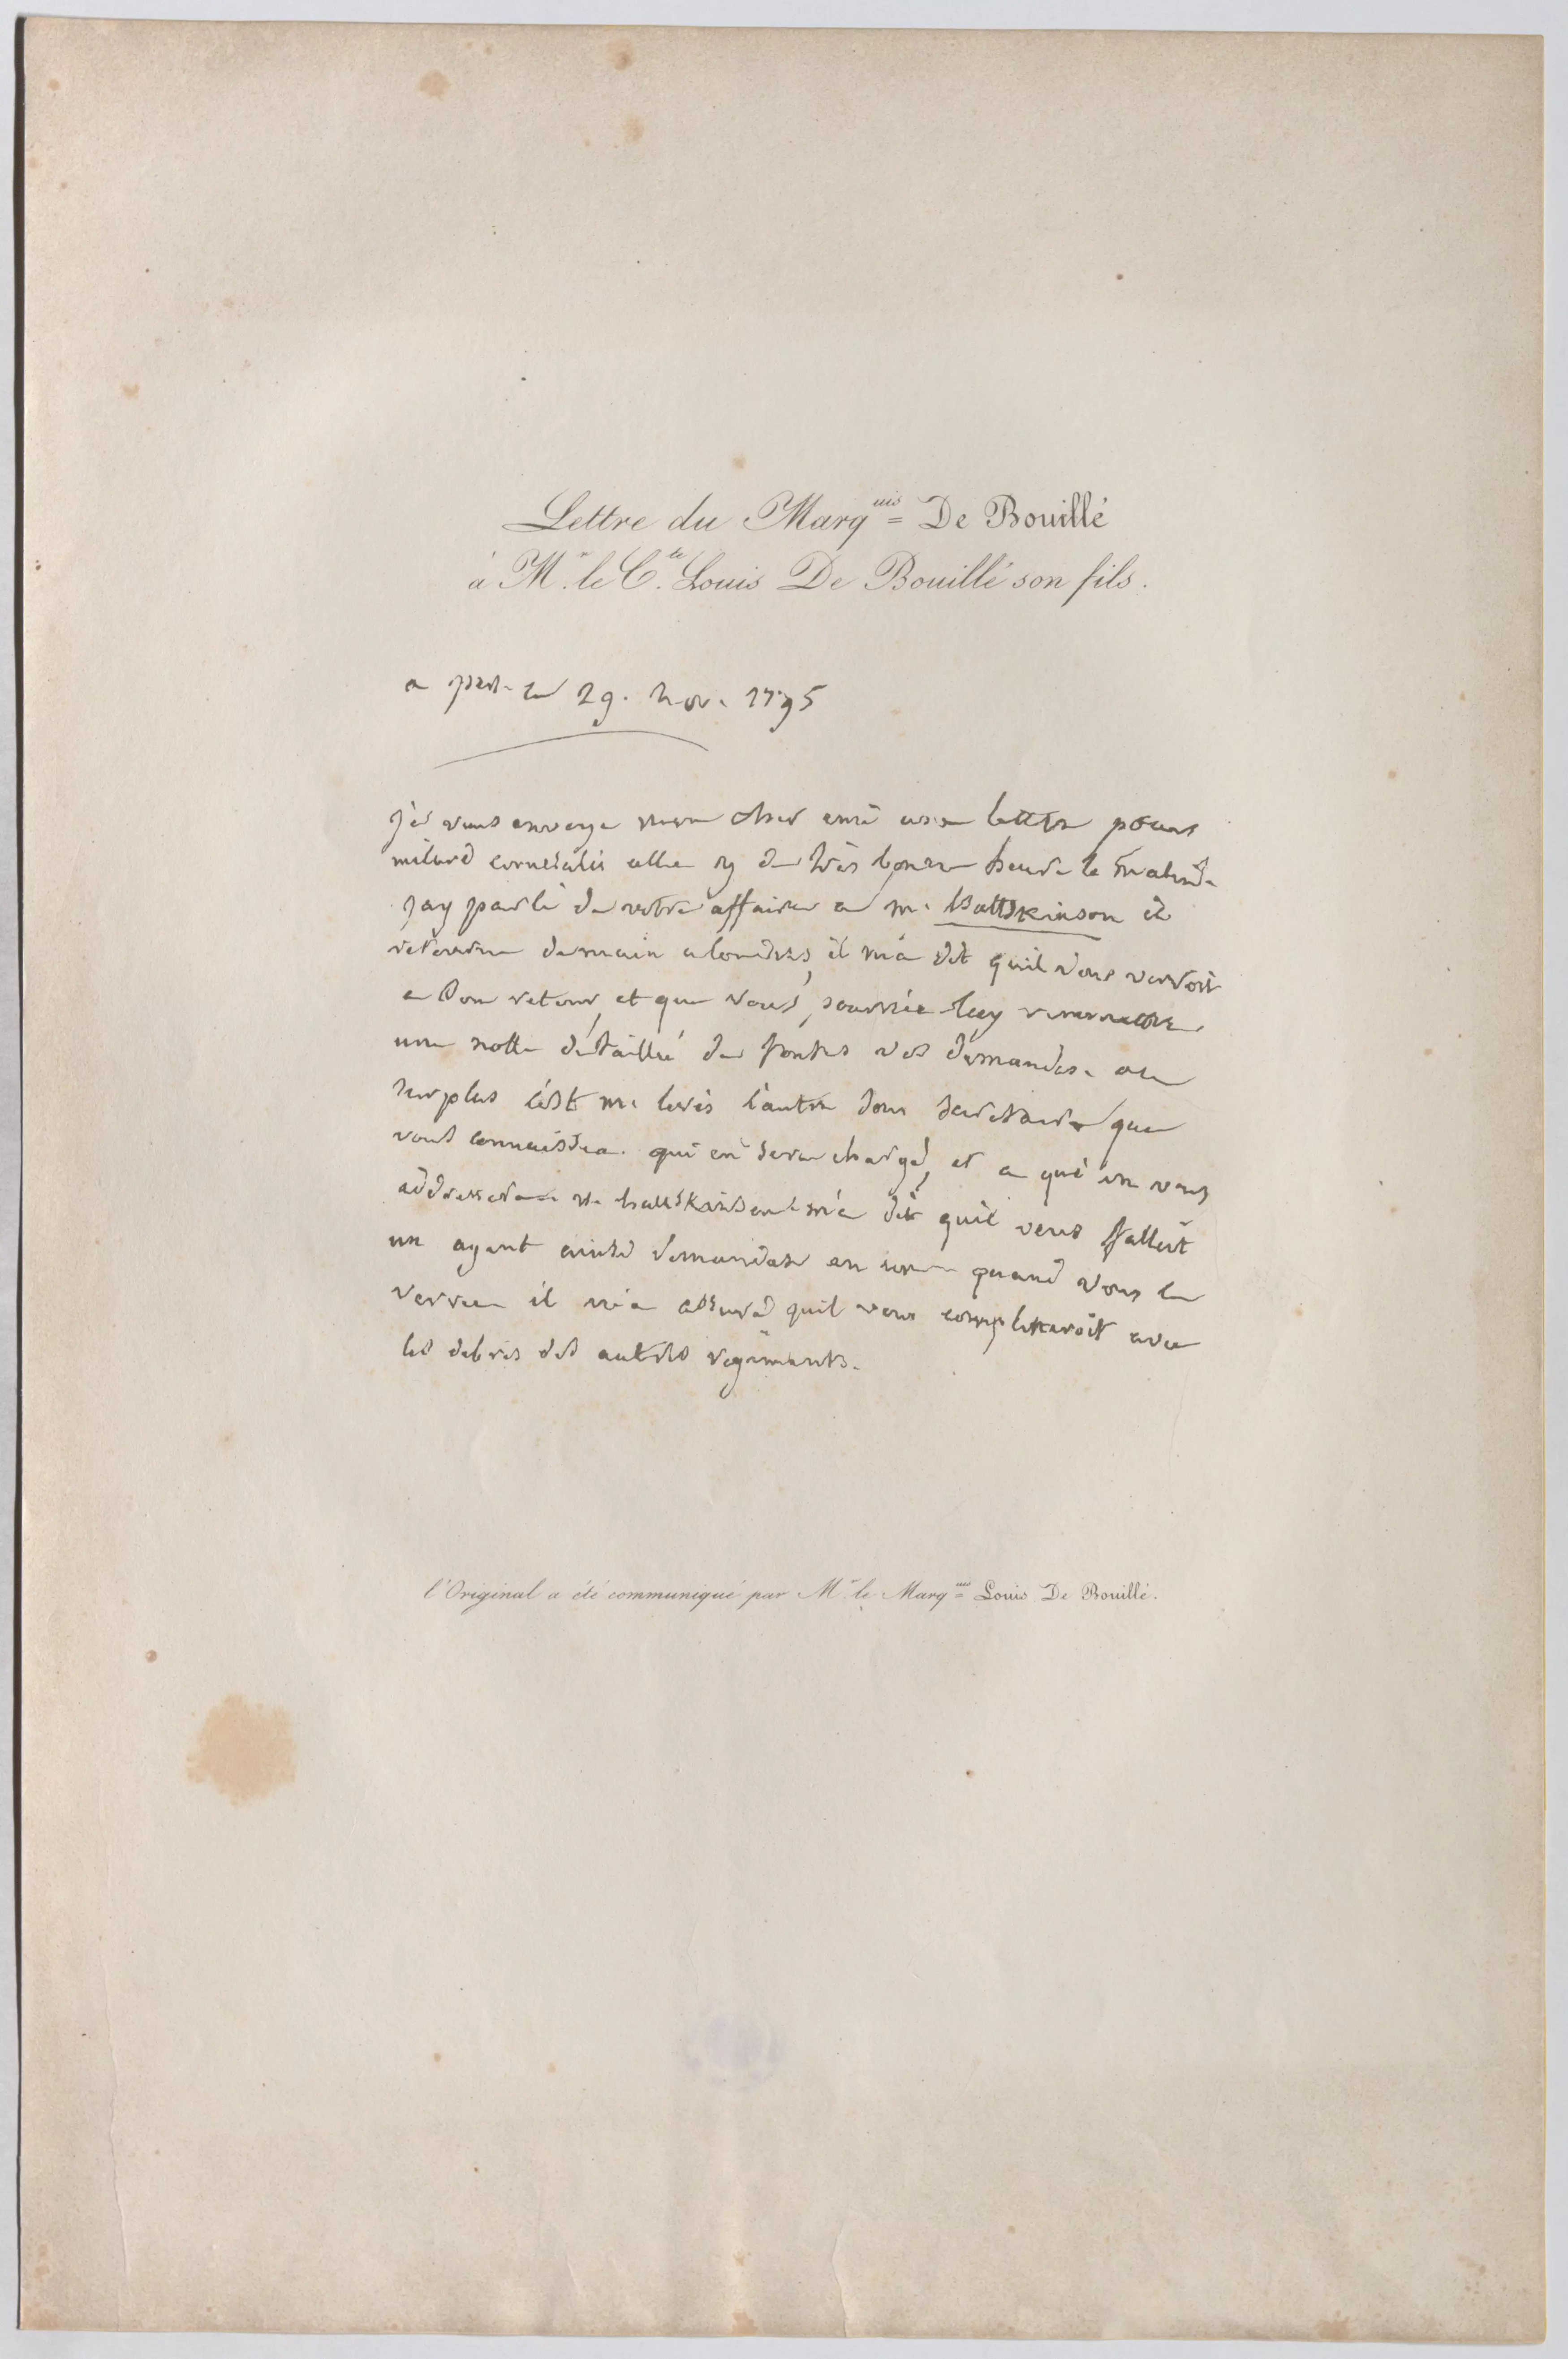 Lettre du Marq.uis De Bouillé
à M.r le C.te Louis De Bouillé son fils.
a 29. nov. 1795
je vous envoye mon cher ami une lettre pour
milord cornwalis allez y de très bonne heure le matin.
jay parlé de votre affaire a mr. Battskinson il
retourne demain a londres, il m'a dit quil vous verroit
a son retour, et que vous, pourriez luy remettre
une notte détaillée de toutes vos demandes. au
surplus c'est mr. levis l'autre sous secretaire que
vous connaissez. qui en sera chargé, et a qui on vous
addressera mr. battskinson m'a dit quil vous falloit
un agent ainsi demandez en un quand vous le
verrez il m'a assuré quil vous completteroit avec
les debris des autres regiments.
l'Original a été communiqué par M.r le Marq.uis Louis De Bouillé.